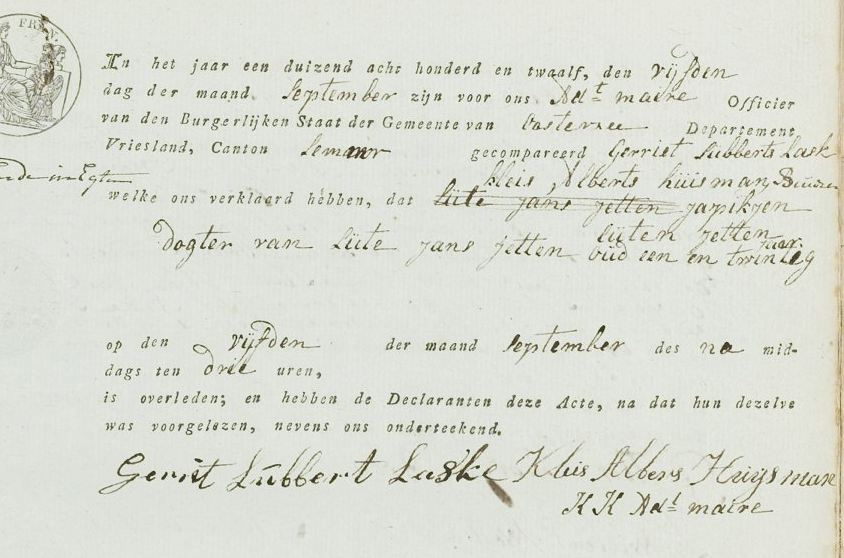 FR
In het jaar een duizend acht honderd en twaalf, den vijfden
dag der maand September zijn voor ons Adt maire Officier
van den Burgerlijken Staat der Gemeente van Oosterzee Departement
Vriesland, Canton Lemmer gecompareerd Gerriet Lubberts Lask
Kleis Alberts Huisman, Buuren
welke ons verklaard hebben, dat Lüte Jans Jetten
Lüten Jetten
Dogter van Lüte Jans Jetten oud een en twintig
jaar
op den vijfden der maand September des na mid-
dags ten drie uren,
is overleden; en hebben de Declaranten deze Acte, na dat hun dezelve
was voorgelezen, nevens ons onderteekend.
Gerriet Lubbert Laske Kleis Albers Huysman
K K Adt maire